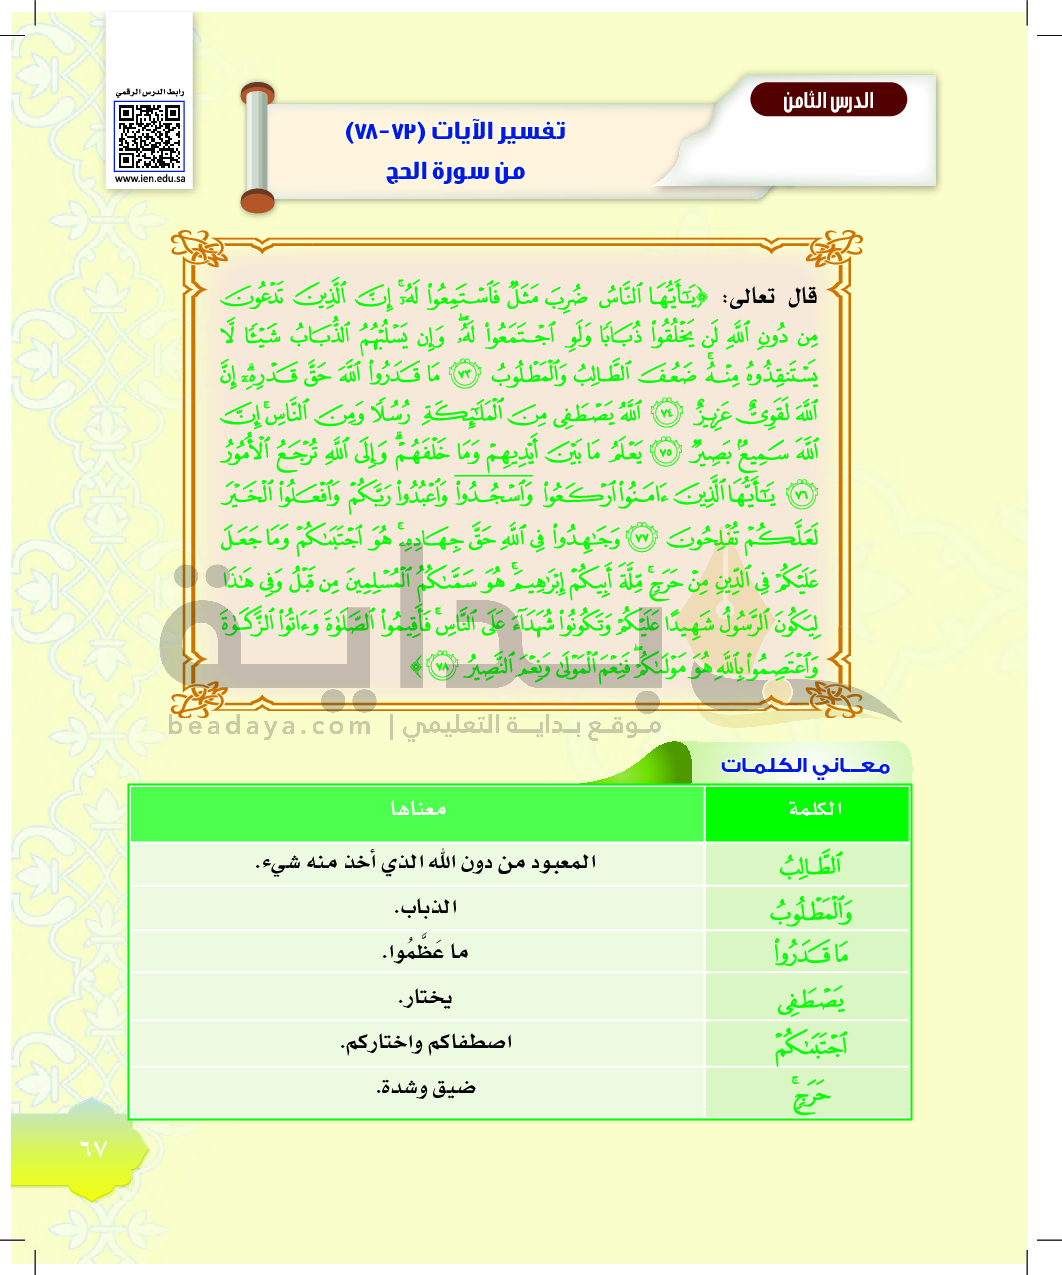 رابط الدرس الرقمي
www.ien.edu.sa
الدرس الثامن
تفسير الآيات (٧٢-٧٨)
من سورة الحج
قال تعالى: ﴿يَٰٓأَيُّهَا ٱلنَّاسُ ضُرِبَ مَثَلٞ فَٱسۡتَمِعُواْ لَهُۥٓۚ إِنَّ ٱلَّذِينَ تَدۡعُونَ
مِن دُونِ ٱللَّهِ لَن يَخۡلُقُواْ ذُبَابٗا وَلَوِ ٱجۡتَمَعُواْ لَهُۥۖ وَإِن يَسۡلُبۡهُمُ ٱلذُّبَابُ شَيۡـٔٗا لَّا
يَسۡتَنقِذُوهُ مِنۡهُۚ ضَعُفَ ٱلطَّالِبُ وَٱلۡمَطۡلُوبُ ٧٣ مَا قَدَرُواْ ٱللَّهَ حَقَّ قَدۡرِهِۦٓۚ إِنَّ
ٱللَّهَ لَقَوِيٌّ عَزِيزٌ ٧٤ ٱللَّهُ يَصۡطَفِي مِنَ ٱلۡمَلَٰٓئِكَةِ رُسُلٗا وَمِنَ ٱلنَّاسِۚ إِنَّ
ٱللَّهَ سَمِيعُۢ بَصِيرٞ ٧٥ يَعۡلَمُ مَا بَيۡنَ أَيۡدِيهِمۡ وَمَا خَلۡفَهُمۡۚ وَإِلَى ٱللَّهِ تُرۡجَعُ ٱلۡأُمُورُ
٧٦ يَٰٓأَيُّهَا ٱلَّذِينَ ءَامَنُواْ ٱرۡكَعُواْ وَٱسۡجُدُواْ وَٱعۡبُدُواْ رَبَّكُمۡ وَٱفۡعَلُواْ ٱلۡخَيۡرَ
لَعَلَّكُمۡ تُفۡلِحُونَ ٧٧ وَجَٰهِدُواْ فِي ٱللَّهِ حَقَّ جِهَادِهِۦۚ هُوَ ٱجۡتَبَىٰكُمۡ وَمَا جَعَلَ
عَلَيۡكُمۡ فِي ٱلدِّينِ مِنۡ حَرَجٖۚ مِّلَّةَ أَبِيكُمۡ إِبۡرَٰهِيمَۚ هُوَ سَمَّىٰكُمُ ٱلۡمُسۡلِمِينَ مِن قَبۡلُ وَفِي هَٰذَا
لِيَكُونَ ٱلرَّسُولُ شَهِيدًا عَلَيۡكُمۡ وَتَكُونُواْ شُهَدَآءَ عَلَى ٱلنَّاسِۚ فَأَقِيمُواْ ٱلصَّلَوٰةَ وَءَاتُواْ ٱلزَّكَوٰةَ
وَٱعۡتَصِمُواْ بِٱللَّهِ هُوَ مَوۡلَىٰكُمۡۖ فَنِعۡمَ ٱلۡمَوۡلَىٰ وَنِعۡمَ ٱلنَّصِيرُ ٧٨﴾
بداية
موقع بداية التعليمي | beadaya.com
معاني الكلمات
الكلمة معناها
ٱلطَّالِبُ المعبود من دون الله الذي أخذ منه شيء.
وَٱلۡمَطۡلُوبُ الذباب.
مَا قَدَرُواْ ما عَظَّمُوا.
يَصۡطَفِي يختار.
ٱجۡتَبَىٰكُمۡ اصطفاكم واختاركم.
حَرَجٖۚ ضيق وشدة.
٦٧